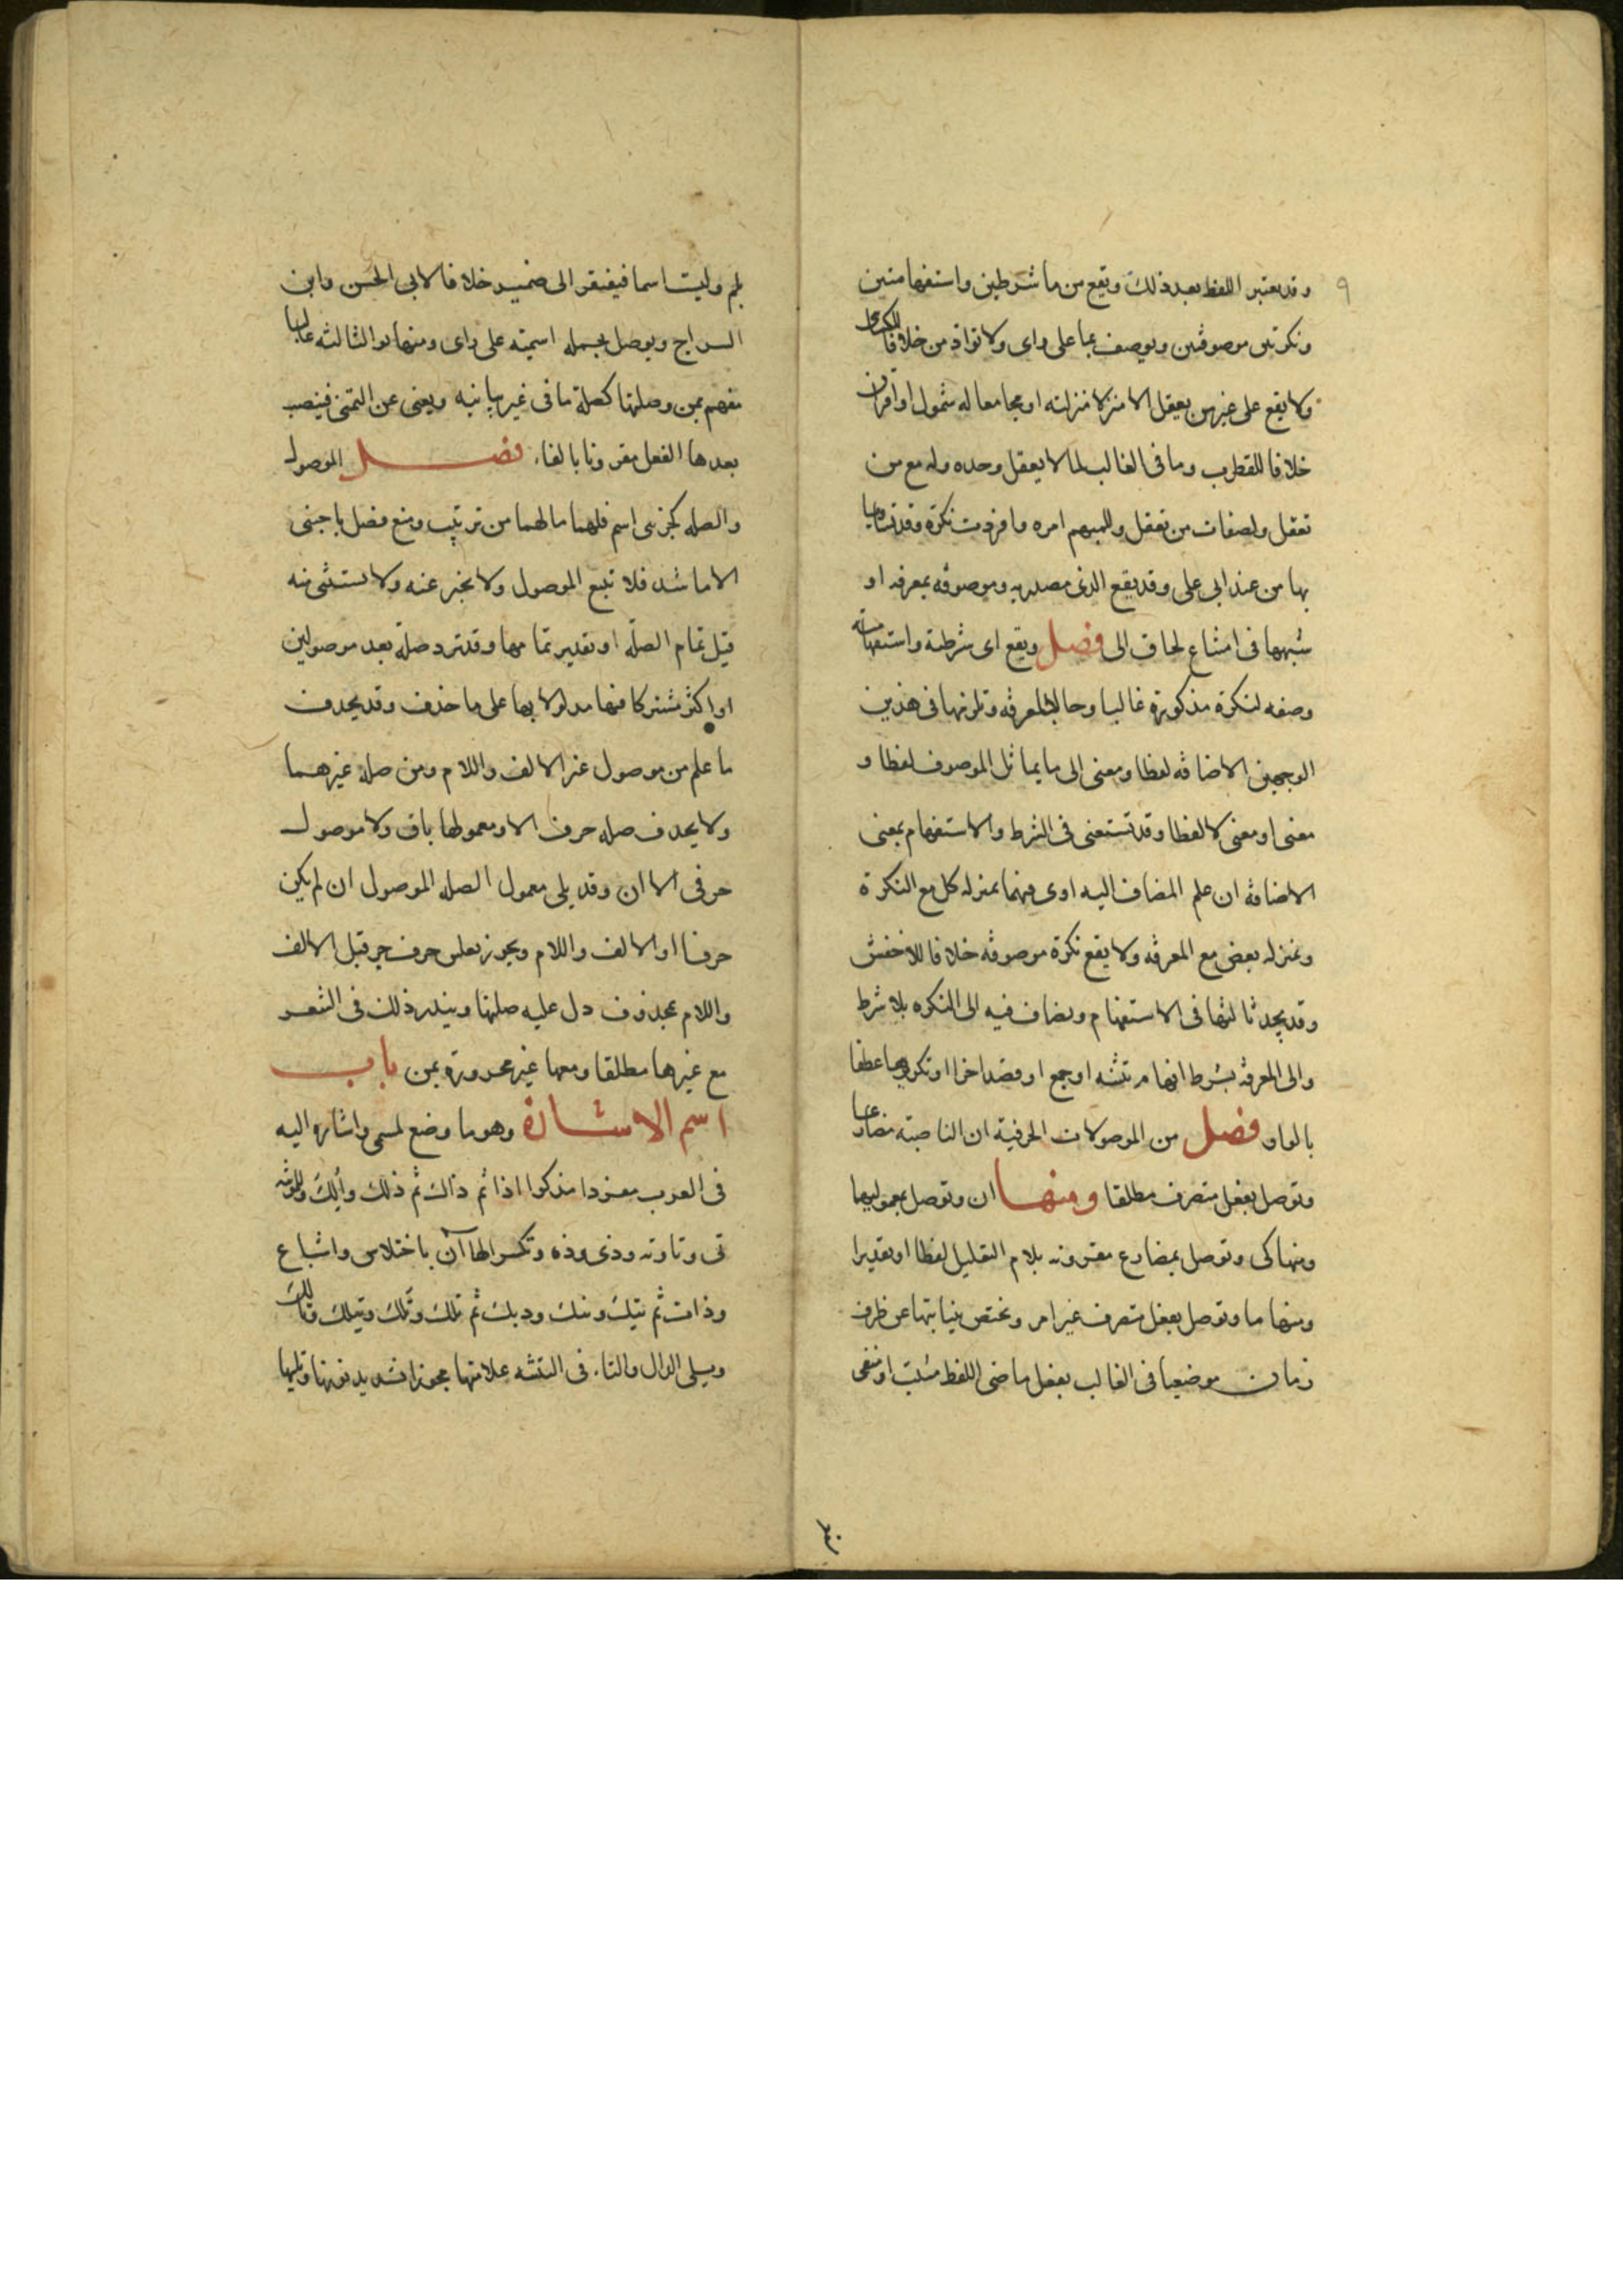 ٩
وقد يعتبر اللفظ بعد ذلك وتقع من ما شرطين واستفهامتين
ونكرتين موصوفتين ويوصف بما على راى ولا تزاد من خلافا للكسائى
ولا يقع على غير من يعقل الا منزلا منزلته او مجامعا له شمول او اقتران
خلافا للقطرب وما فى الغالب لما لا يعقل وحده وله مع من
تعقل ولصفات من تعقل وللمبهم امره وافردت نكرة وقد تساويها
بها من عند ابى على وقد يقع الذى مصدريه وموصوفه بمعرفه او
شبهها فى امتناع لحاق الى فصل ويقع اى شرطية واستفهامية
وصفه لنكرة مذكورة غالبا وحالا لمعرفه وتلزمها فى هذين
الوجهين الاضافه لفظا ومعنى الى ما يماثل الموصوف لفظا و
معنى او معنى لا لفظا وقد تستغنى فى الشرط والاستفهام بمعنى
الاضافه ان علم المضاف اليه اوى فيهما بمنزله كل مع النكرة
وبمنزله بعض مع المعرفه ولا يقع نكرة موصوفه خلافا للاخفش
وقد يحذ ثالثها فى الاستفهام ويضاف فيه الى النكره بلا شرط
والى المعرفه بشرط افهام تثنيه او جمع او قصد اجزا او تكريرها عطفا
بالواو فصل من الموصولات الحرفية ان الناصبة مضارعا
وتوصل بفعل متصرف مطلقا ومنها ان وتوصل بمعموليها
ومنها كى وتوصل بمضارع مقرونه بلام التعليل لفظا او تقديرا
ومنها ما وتوصل بفعل متصرف غير امر وتختص بنيابتها عن ظرف
زمان موضعها فى الغالب بفعل ماضى اللفظ مثبت او منفى
بلم وليت اسما فيفتقر الى ضمير خلافا لابى الحسن وابن
السراج ويوصل بجمله اسميته على راى ومنها لو الثالثه غالبا
مفهم بمن وصلتها كصلة ما فى غير نيابه ويغنى عن التمنى فينصب
بعدها الفعل مقرونا بالفاء فصل الموصول
والصله كجزءى اسم فلهما ما لهما من ترتيب ومنع فصل باجنبى
الا ما شذ فلا تبع الموصول ولا يخبر عنه ولا يستثنى منه
قبل تمام الصله او تقدير تمامها وقد ترد صله بعد موصولين
او اكثر مشتركا فيها مدلولا بها على ما حذف وقد يحذف
ما علم من موصول غير الالف واللام ومن صله غيرهما
ولا يحذف صله حرف الا ومعمولها باق ولا موصول
حرفى الا ان وقد يلى معمول الصله الموصول ان لم يكن
حرفا او الالف واللام ويجوز تعلق حرف جر قبل الالف
واللام بمحذوف دل عليه صلتها ويندر ذلك فى الشعر
مع غيرها مطلقا ومعها غير مجرورة بمن باب
اسم الاشارة وهو ما وضع لمسمى واشاره اليه
فى القرب مفردا مذكرا ذا ثم ذاك ثم ذلك وألك وللمؤنثه
تى وتا وته وذى وذه وتكسر الهاآن باختلاس واشباع
وذات ثم تيك وتيك وذيك ثم تلك وتلك وتيلك وتالك
ويلى الذال والتاء فى التثنيه علامتها مجوزا تشديد نونها وتليها